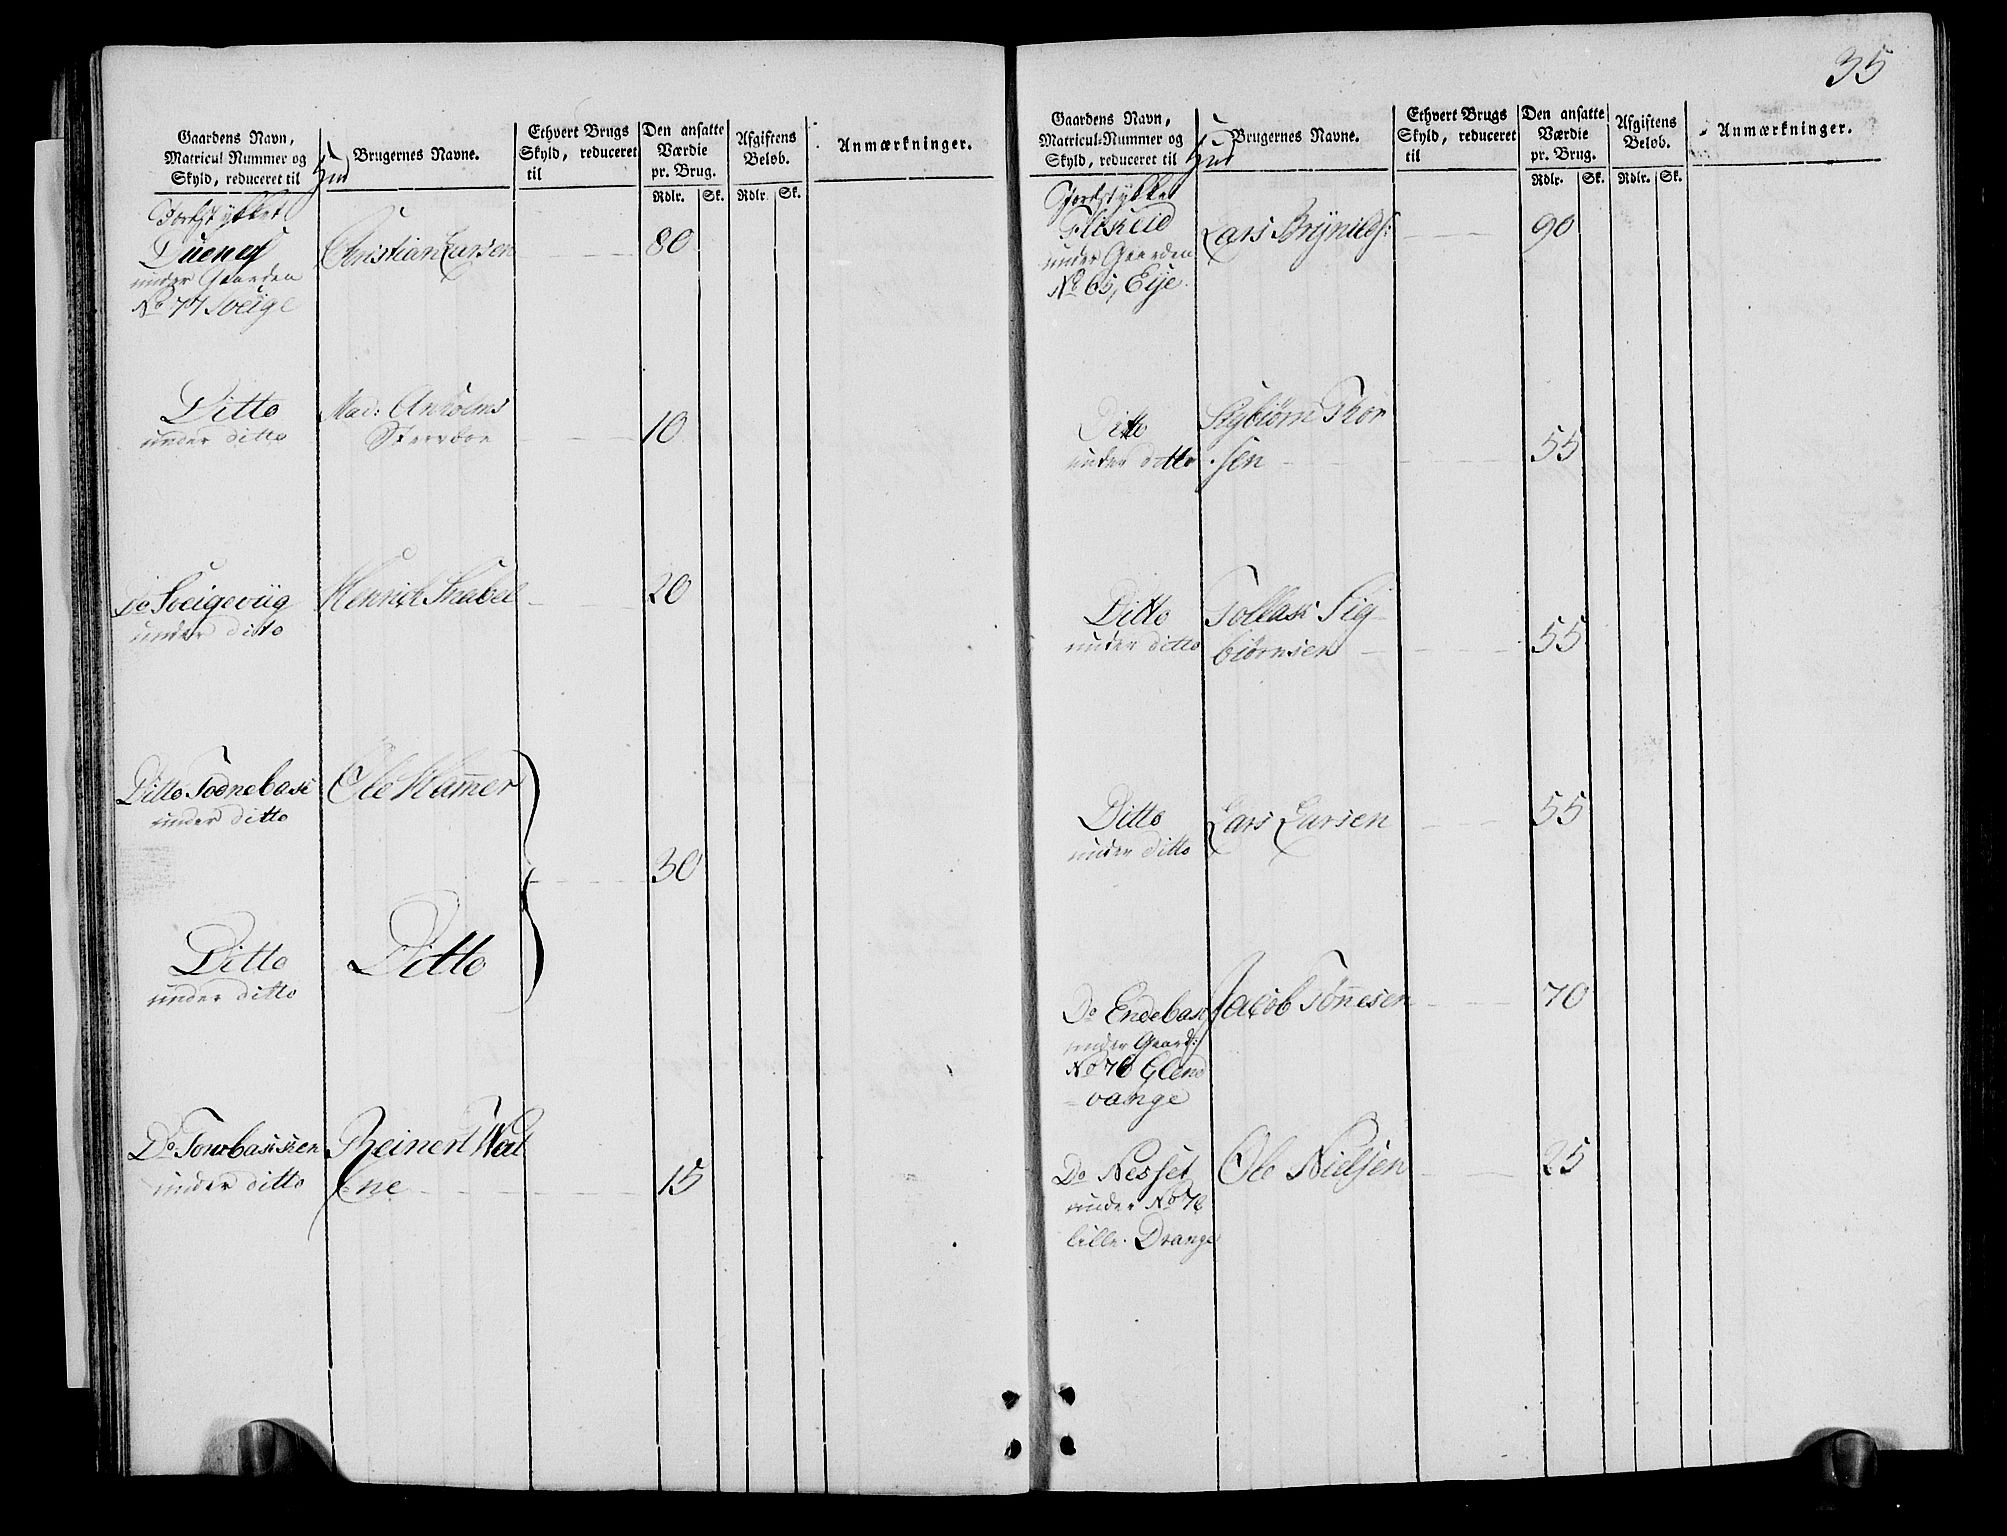 35
Gaardens Navn,
Matricul Nummer og
Skyld, reduceret til
Hud
Brugernes Navne.
Ethvert Brugs
Skyld, reduceret
til
Den ansatte
Værdie
pr. Brug.
Rdlr. Sk.
Afgiftens
Beløb.
Rdlr. Sk.
Anmærkninger.
Jordstykket
Duenes Christian Larsen 80
under Gaarden
No 77 Sveige
Ditto Mad: Anholms
under ditto Sterrboe 10
Do Sveigeviig Henrich Snabel 20
under ditto
Ditto Todnebase Ole Hamer
under ditto
30
Ditto Ditto
under ditto
Do Reinert Wat
under ditto ne 15
Gaardens Navn,
Matricul-Nummer og
Skyld, reduceret til
Hud
Brugernes Navne.
Ethvert Brugs
Skyld, reduceret
til
Den ansatte
Værdie
pr. Brug.
Rdlr. Sk.
Afgiftens
Beløb.
Rdlr. Sk.
Anmærkninger.
Jordstykke
Lars Brynilds: 90
under Gaarden
No 65, Eije
Ditto Sigbiørn Thor
under ditto sen 55
Ditto Tollas Sig
under ditto biørnsen 55
Ditto Lars Larsen 55
under ditto
Do Endebase Jacob Tønnesen 70
under Gaard:
No 76 Glend
vange
Do Nesset Ole Nielsen 25
under No 76
lille Drange